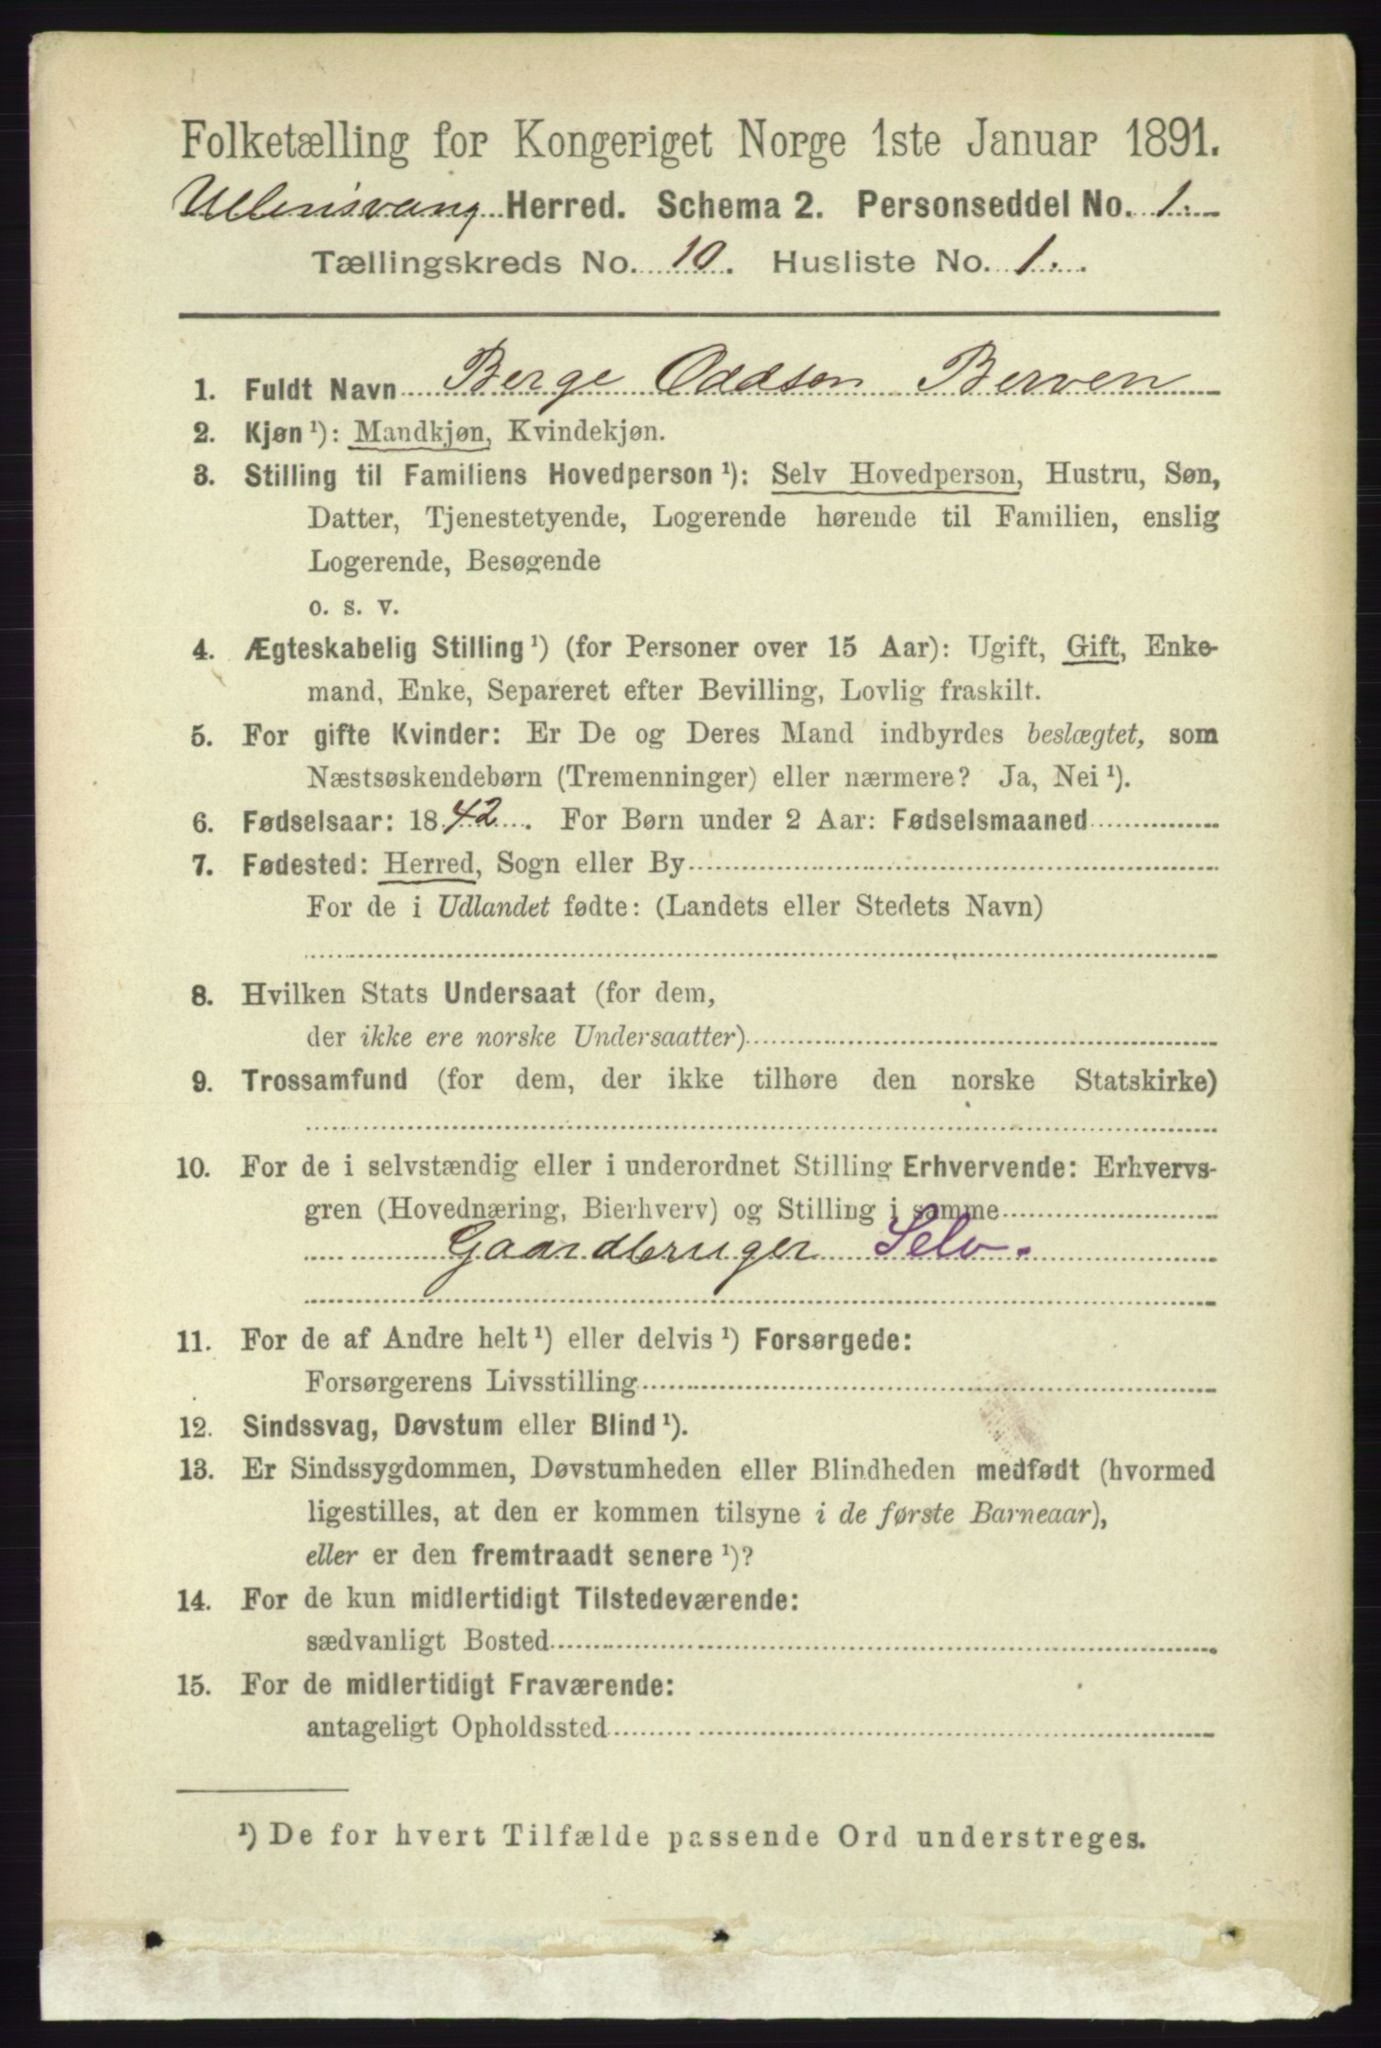 Folketælling for Kongeriget Norge 1ste Januar 1891.
Ullensvang Herred. Schema 2. Personseddel No. 1.
Tællingskreds No. 10. Husliste No. 1.
1. Fuldt Navn Berge Oddsen Berven
2. Kjøn¹): Mandkjøn, Kvindekjøn.
3. Stilling til Familiens Hovedperson¹): Selv Hovedperson, Hustru, Søn,
Datter, Tjenestetyende, Logerende hørende til Familien, enslig
Logerende, Besøgende
o. s. v.
4. Ægteskabelig Stilling¹) (for Personer over 15 Aar): Ugift, Gift, Enke-
mand, Enke, Separeret efter Bevilling, Lovlig fraskilt.
5. For gifte Kvinder: Er De og Deres Mand indbyrdes beslægtet, som
Næstsøskendebørn (Tremenninger) eller nærmere? Ja, Nei¹).
6. Fødselsaar: 1842. For Børn under 2 Aar: Fødselsmaaned
7. Fødested: Herred, Sogn eller By
For de i Udlandet fødte: (Landets eller Stedets Navn)
8. Hvilken Stats Undersaat (for dem,
der ikke ere norske Undersaatter)
9. Trossamfund (for dem, der ikke tilhøre den norske Statskirke)
10. For de i selvstændig eller i underordnet Stilling Erhvervende: Erhvervs-
gren (Hovednæring, Bierhverv) og Stilling i samme
Gaardbruger Selv.
11. For de af Andre helt¹) eller delvis¹) Forsørgede:
Forsørgerens Livsstilling
12. Sindssvag, Døvstum eller Blind¹).
13. Er Sindssygdommen, Døvstumheden eller Blindheden medfødt (hvormed
ligestilles, at den er kommen tilsyne i de første Barneaar),
eller er den fremtraadt senere¹)?
14. For de kun midlertidigt Tilstedeværende:
sædvanligt Bosted
15. For de midlertidigt Fraværende:
antageligt Opholdssted
¹) De for hvert Tilfælde passende Ord understreges.